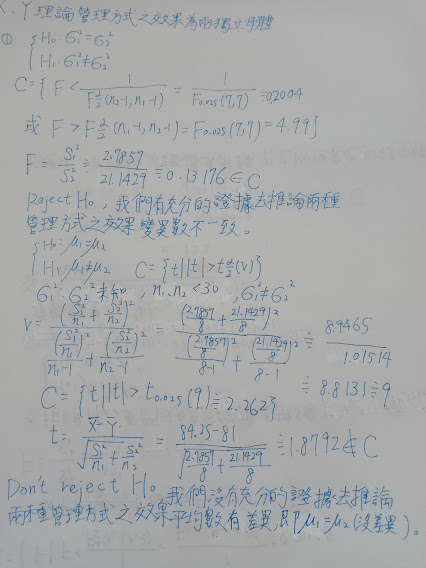 X、Y理論管理方式之效果為兩獨立母體
① { H₀: σ₁² = σ₂²
H₁: σ₁² ≠ σ₂²
C = { F < 1/F_{α/2}(n₂-1, n₁-1) = 1/F_{0.025}(7,7) ≒ 0.2004
或 F > F_{α/2}(n₁-1, n₂-1) = F_{0.025}(7,7) = 4.99 }
F = S₁²/S₂² = 2.7857/21.1429 ≒ 0.13176 ∈ C
Reject H₀, 我們有充分的證據去推論兩種
管理方式之效果變異數不一致。
{ H₀: μ₁ = μ₂
H₁: μ₁ ≠ μ₂ C = { t | |t| > t_{α/2}(v) }
σ₁², σ₂² 未知, n₁, n₂ < 30, σ₁² ≠ σ₂²
v = (S₁²/n₁ + S₂²/n₂)² / ((S₁²/n₁)²/(n₁-1) + (S₂²/n₂)²/(n₂-1)) = (2.7857/8 + 21.1429/8)² / ((2.7857/8)²/(8-1) + (21.1429/8)²/(8-1)) ≒ 8.9465/1.01514
≒ 8.8131 ≒ 9
C = { t | |t| > t_{0.025}(9) ≒ 2.262 }
t = (X̄ - Ȳ)/√(S₁²/n₁ + S₂²/n₂) = (84.25 - 81)/√(2.7857/8 + 21.1429/8) ≒ 1.8792 ∉ C
Don't reject H₀, 我們沒有充分的證據去推論
兩種管理方式之效果平均數有差異, 即 μ₁ = μ₂ (沒差異)。